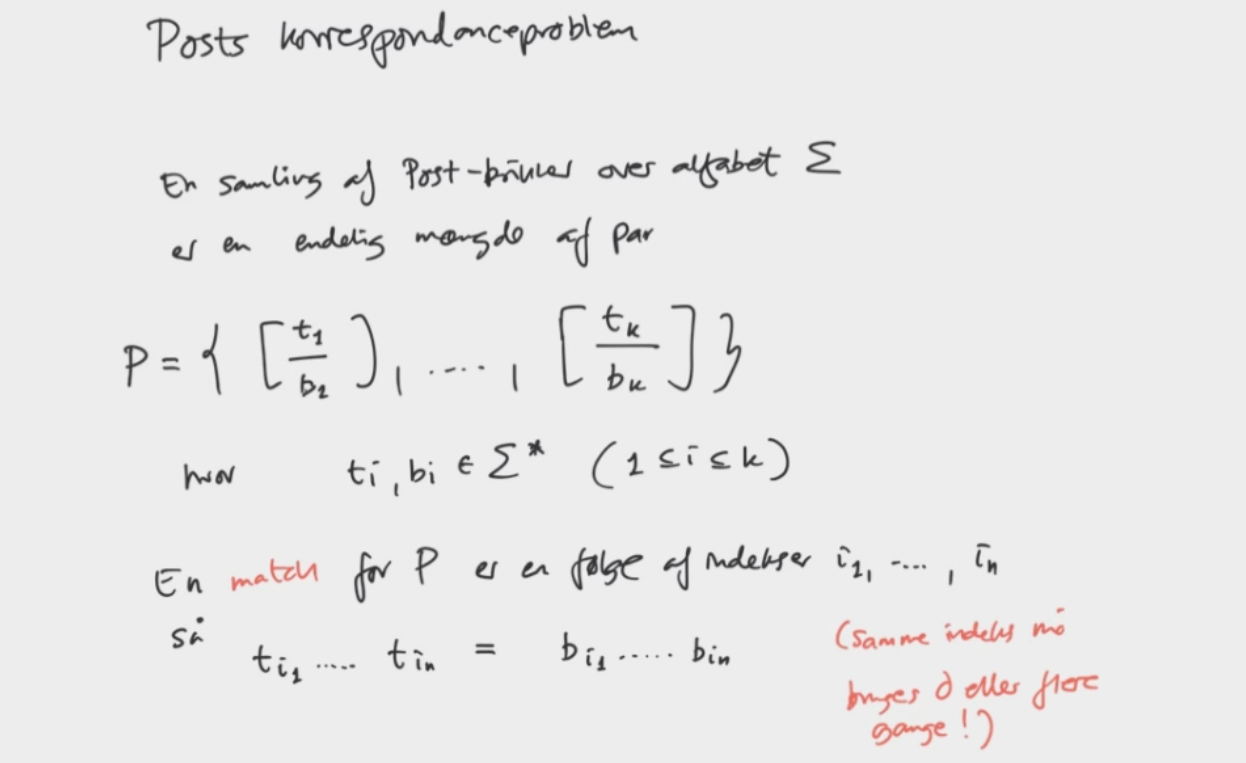 Posts korrespondanceproblem
En samling af Post-brikker over alfabet Σ
er en endelig mængde af par
P = { [t₁/b₁], ....., [tₖ/bₖ] }
hvor tᵢ, bᵢ ∈ Σ* (1 ≤ i ≤ k)
En match for P er en følge af indekser i₁, ...., iₙ
så t_{i₁} ..... t_{iₙ} = b_{i₁} ..... b_{iₙ}
(samme indeks må
bruges 0 eller flere
gange!)